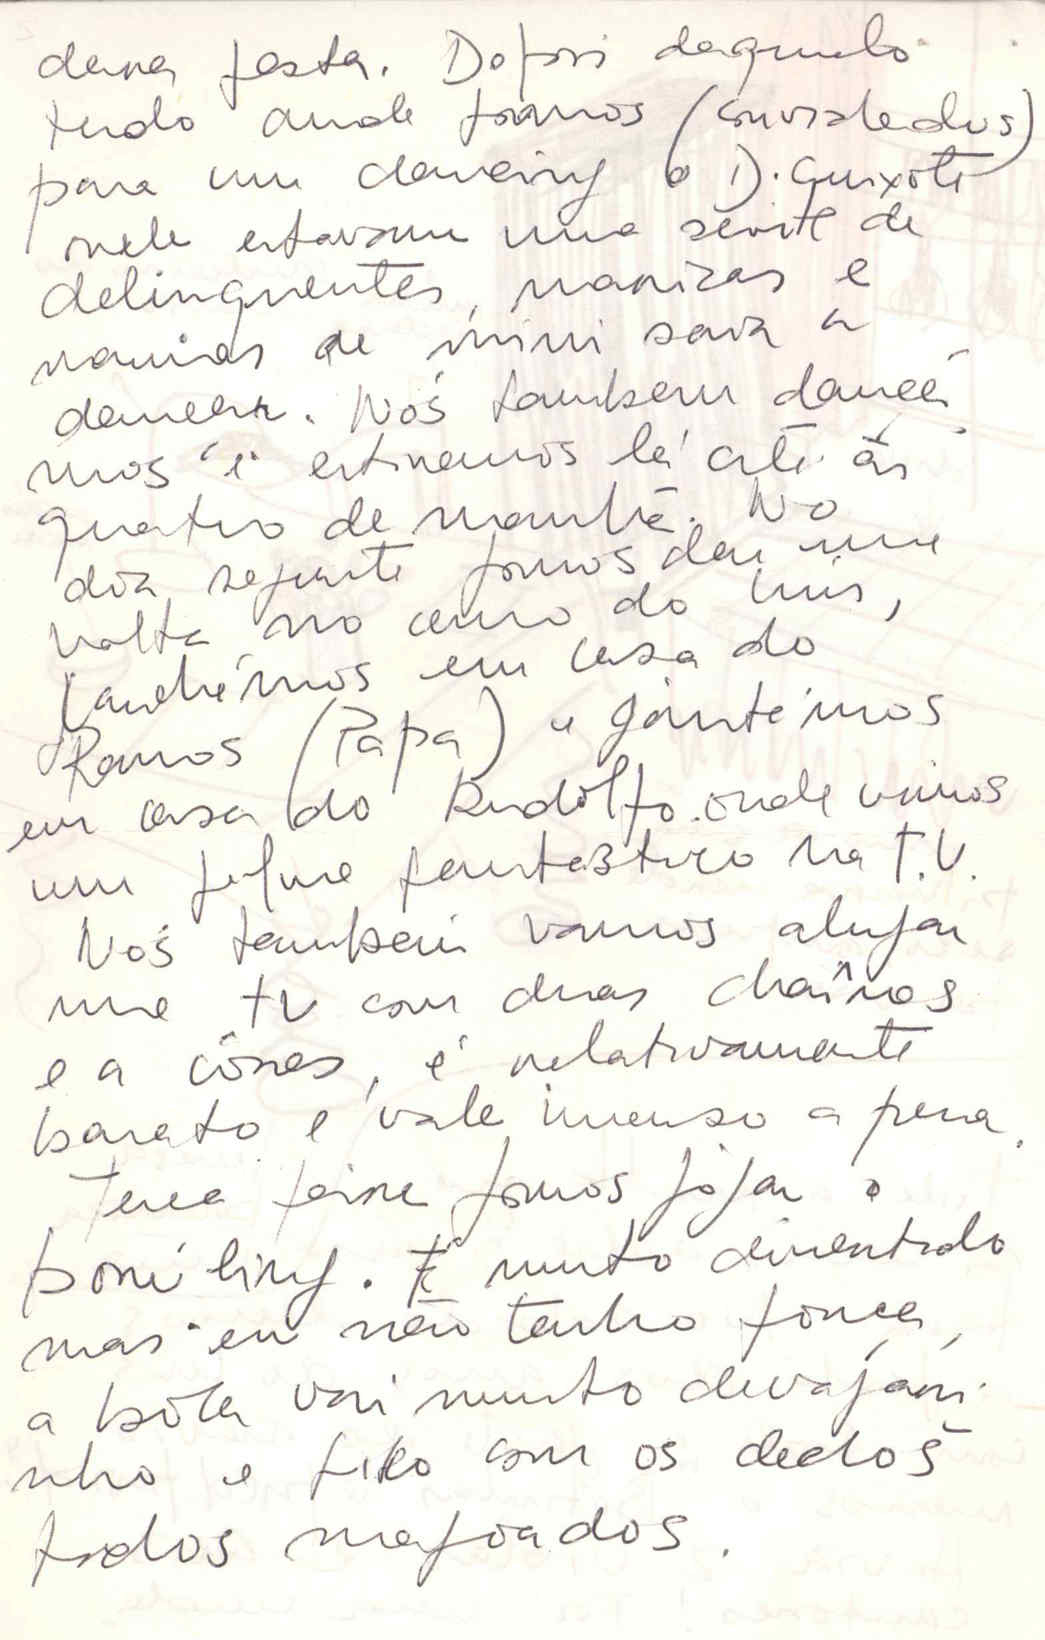 dessa festa. Depois daquilo
tudo ainda fomos (convidados)
para um dancing o D. Quixote
nele estavam uma série de
delinquentes, maricas e
manias de mini saia a
dançar. Nós tambem dançá
mos e estivemos lá até ás
quatro de manhã. No
dia seguinte fomos dar uma
volta no carro do Luis,
lanchámos em casa do
Ramos (Papa) e jantámos
em casa do Rudolfo onde vimos
um filme fantástico na T.V.
Nós também vamos alugar
uma TV com duas chaînes
e a côres, é relativamente
barato e vale imenso a pena.
Terça feira fomos jogar o
bowling. É muito divertido
mas eu não tenho força,
a bóla vai muito devagári
nho e fico com os dedos
todos magoados.